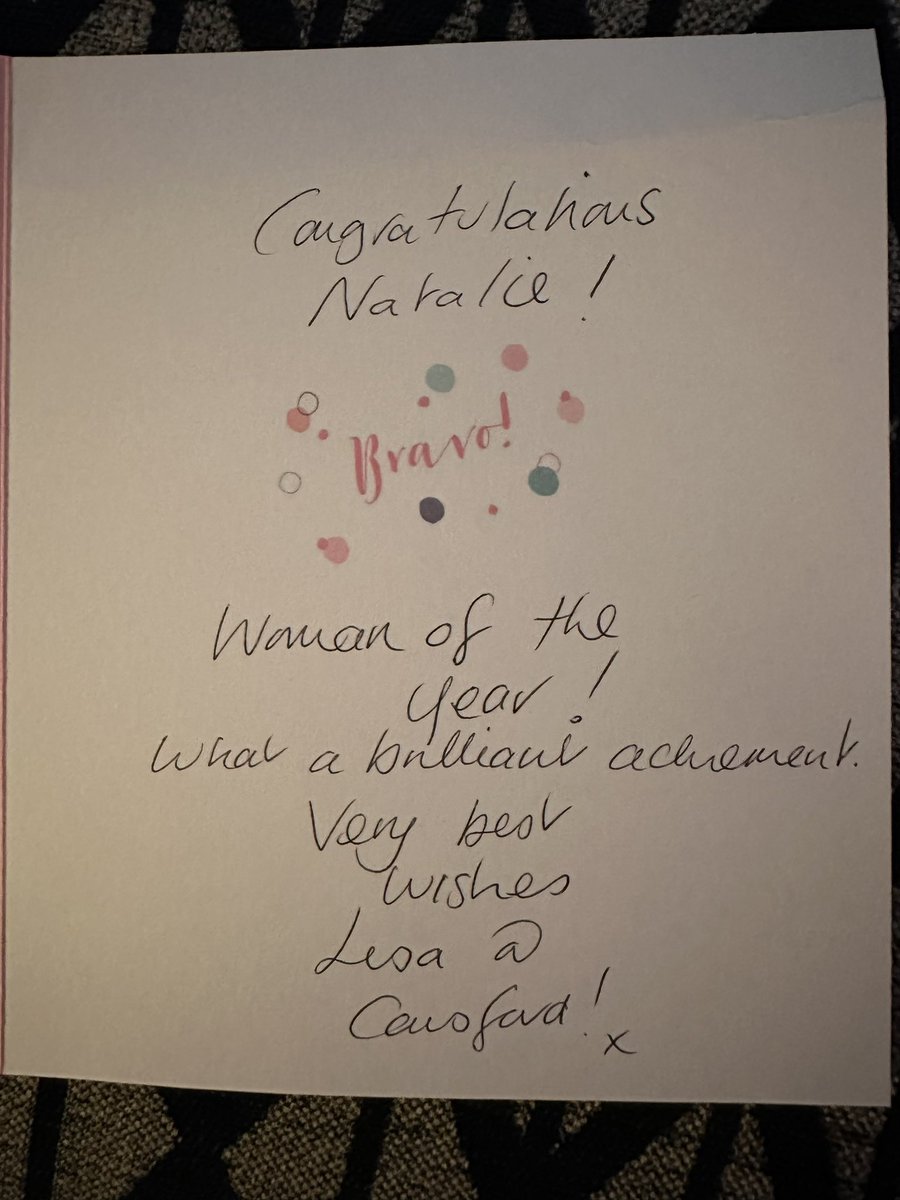 Congratulations
Natalie!
Bravo!
Woman of the
year!
What a brilliant achievement.
Very best
wishes
Lisa @
!x